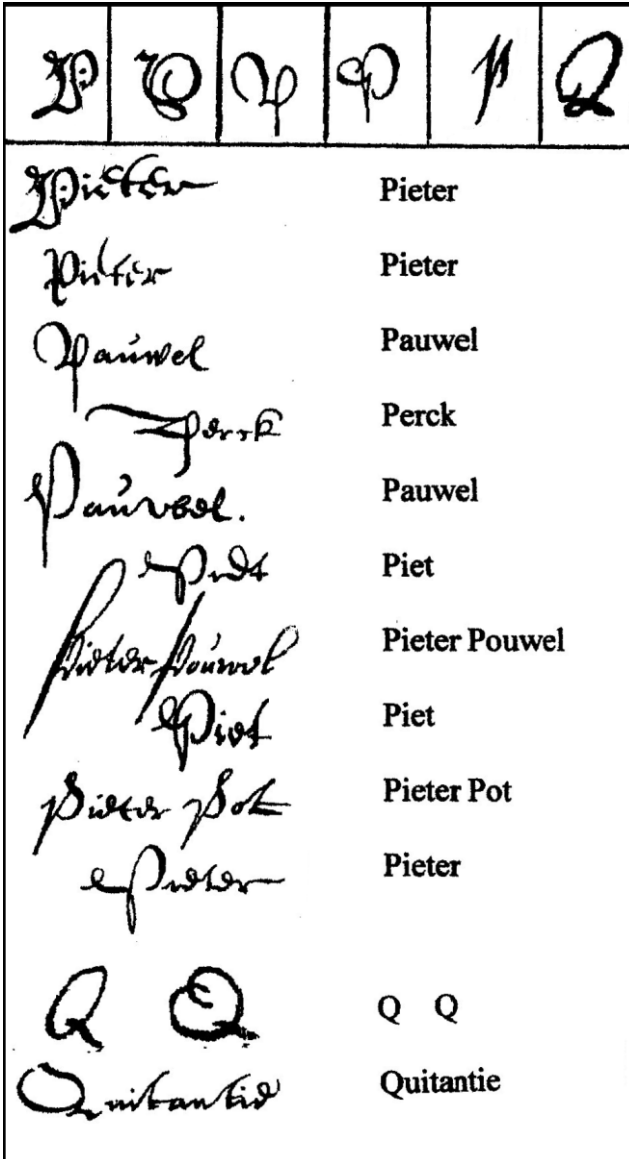 P P P P P Q
Pieter Pieter
Pieter Pieter
Pauwel Pauwel
Perck Perck
Pauwel. Pauwel
Piet Piet
Pieter Pouwel Pieter Pouwel
Piet Piet
Pieter Pot Pieter Pot
Pieter Pieter
Q Q Q Q
Quitantie Quitantie